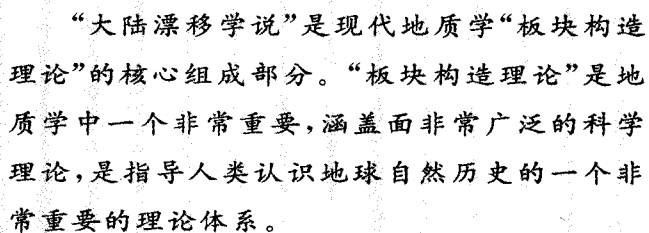 “大陆漂移学说”是现代地质学“板块构造
理论”的核心组成部分。“板块构造理论”是地
质学中一个非常重要,涵盖面非常广泛的科学
理论,是指导人类认识地球自然历史的一个非
常重要的理论体系。